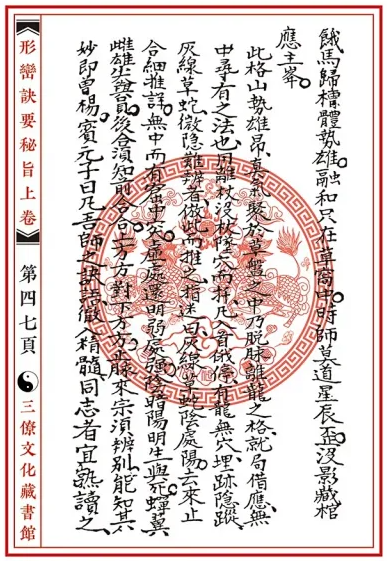 餓馬歸槽體勢雄。融和只在草窩中。時師莫道星辰歪。沒影藏棺
應主峯。
此格山勢雄昂。真氣聚於草盤之中。乃脫脉離龍之格。就局借應。無
中尋有之法也。用離杖沒杖墜穴而扦。凡入首俄停。有龍無穴。埋跡隐蹤。
灰線草蛇。微隐難辨者。倣此而推之。指迷曰。灰線草蛇陰處陽。去來止
合細推詳。無中而有客中空。虛處還明弱處強。陰暗陽明生與死。蟬翼
雌雄坐後合須知前合方方對下方方。脉來宗須辨別。能知其
妙即曾楊。賓元子曰。凡吾師之訣語。徹入精髓。同志者宜熟讀之。
形巒訣要秘旨上卷
第四七頁
三僚文化藏書館